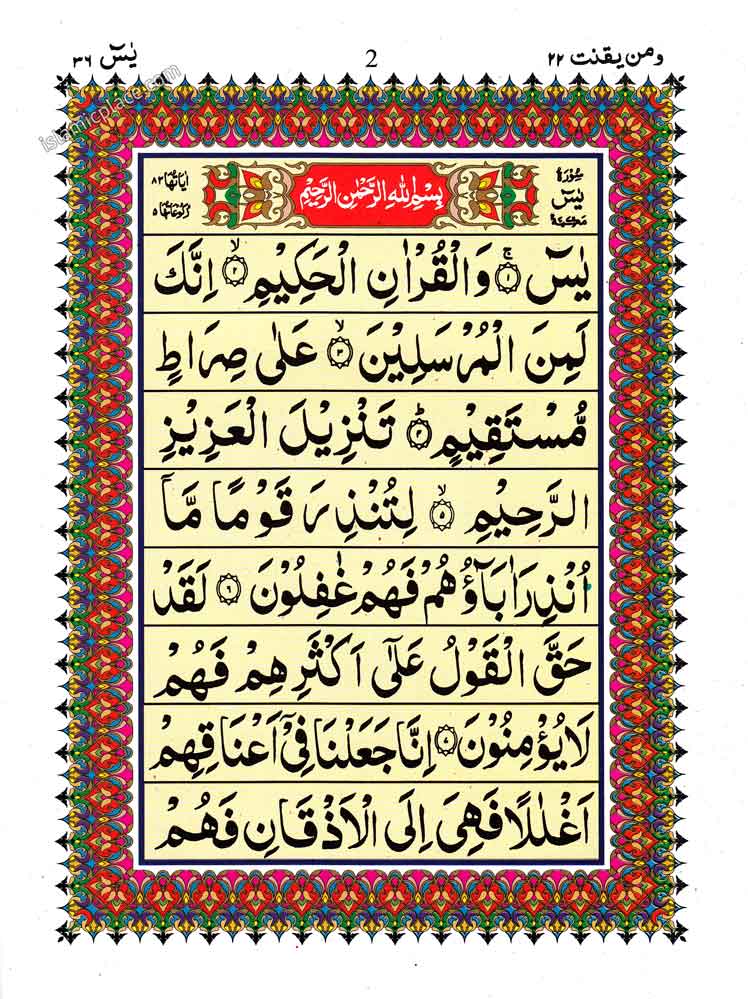 ومن يقنت ٢٢
2
يٰسٓ ٣٦
islamicplace.com
سُوْرَةُ يٰسٓ مَكِّيَّةٌ
بِسْمِ اللهِ الرَّحْمٰنِ الرَّحِيْمِ
اٰيَاتُهَا ٨٣ رُكُوْعَاتُهَا ٥
يٰسٓ ۚ﴿١﴾ وَالْقُرْاٰنِ الْحَكِيْمِ ۙ﴿٢﴾ اِنَّكَ
لَمِنَ الْمُرْسَلِيْنَ ۙ﴿٣﴾ عَلٰى صِرَاطٍ
مُّسْتَقِيْمٍ ؕ﴿٤﴾ تَنْزِيْلَ الْعَزِيْزِ
الرَّحِيْمِ ۙ﴿٥﴾ لِتُنْذِرَ قَوْمًا مَّاۤ
اُنْذِرَ اٰبَآؤُهُمْ فَهُمْ غٰفِلُوْنَ ﴿٦﴾ لَقَدْ
حَقَّ الْقَوْلُ عَلٰۤى اَكْثَرِهِمْ فَهُمْ
لَا يُؤْمِنُوْنَ ﴿٧﴾ اِنَّا جَعَلْنَا فِيْۤ اَعْنَاقِهِمْ
اَغْلٰلًا فَهِيَ اِلَى الْاَذْقَانِ فَهُمْ